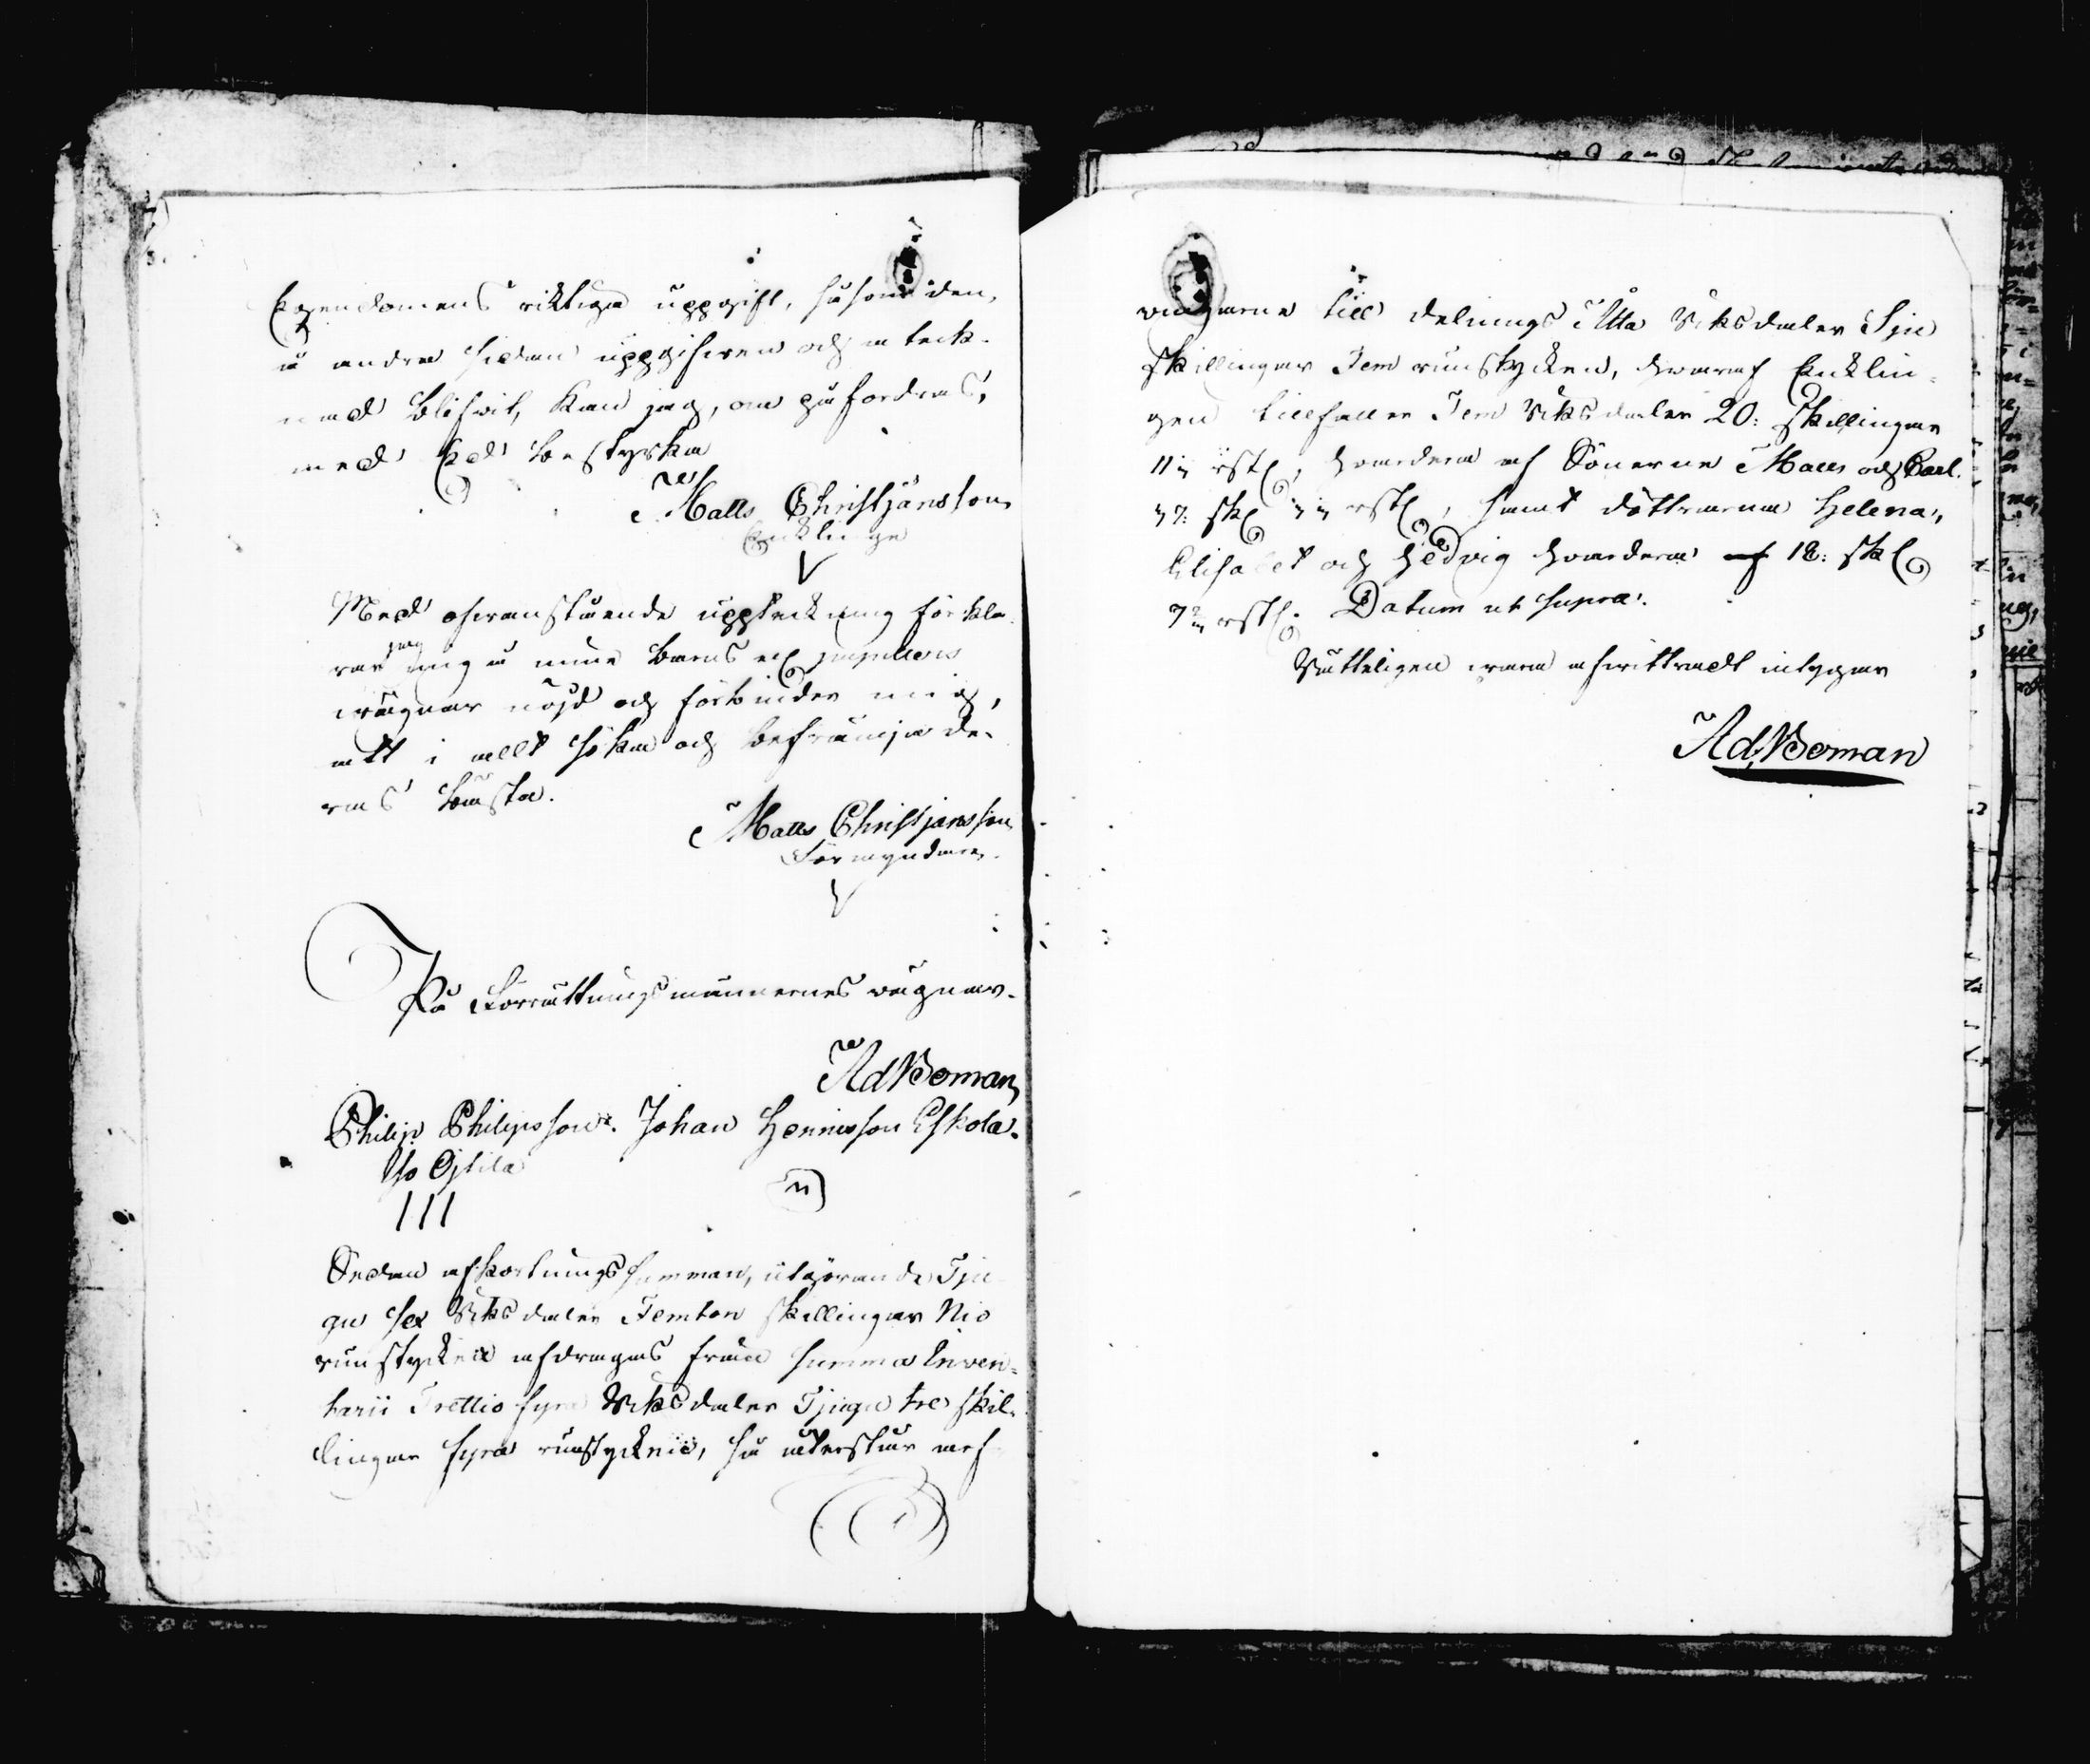 Egendomens riktiga uppgift, såsom den,
å andra sidan uppgifwen och anteck-
nad blifwit, kan jag, om påfordras,
med Ed bestyrka
Matts Christjánsson
Enklinge
Med ofwanstående uppteckning förkla-
rar jag mig å mine Barns
wägnar nöjd och förbinder mig,
att i allt söka och befrämja de-
ras bästa.
Matts Christjansson
Förmyndare.
På Förrättningsmännernes wägnar.
AdBoman
Philip Philipsson. Johan Hennisson Eskola.
Ojtila
Sedan afkortningssumman, utgörande Tju-
gu sex Riksdaler Femton skillingar Nio
runstycken afdrages från summa Inven-
tarii Trettio fyra Riksdaler Tjugu tre skil-
lingar fyra runstycken, så återstår arf
wingarne till delnings Åtta Riksdaler Sju
skillingar Fem runstycken, hwaraf Enklin-
gen tillfaller Fem Riksdaler 20: skillingar
11 rst, hwardera af Sönerne Matts och Carl.
37: sk rst, samt döttrarna Helena,
Elisabet och Hedvig hwardera af 18: sk
7 rst. Datum ut supra.
Rätteligen wara afwittradt intygar
Ad Boman